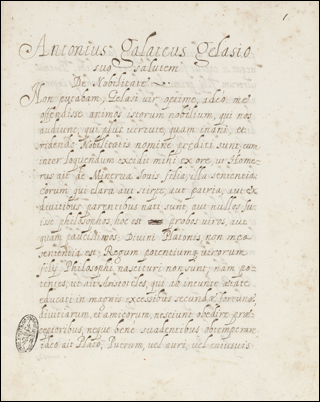 1
Antonius Galateus Gelasio
suo salutem
De Nobilitate
Non putabam, Gelasi vir optime, adeo me
offendisse animos istorum nobilium, qui nos
audiunt, qui plus virtute, quam inani, et
Nobilitatis nomine præditi sunt, cum
inter loquendum excidit mihi ex ore, ut Home-
rus ait de Minerva Iovis filia, illa sententia:
eorum qui clara aut stirpe, aut patria, aut ex
divitibus parentibus nati sunt, aut nullos fu-
isse philosophos, hoc est probos viros, aut
quam paucissimos. Divini Platonis non mea
sententia est: Regum potentiumq virorum
filij Philosophi nascituri non sunt, nam po-
tentes, ut ait Aristoteles, qui ab ineunte ætate
educati in magnis excessibus secundæ fortunæ,
divitiarum, et amicorum, nesciunt obedire præ-
ceptoribus, neque bene suadentibus obtemperare
ait Plato, Puerum, vel auri, vel